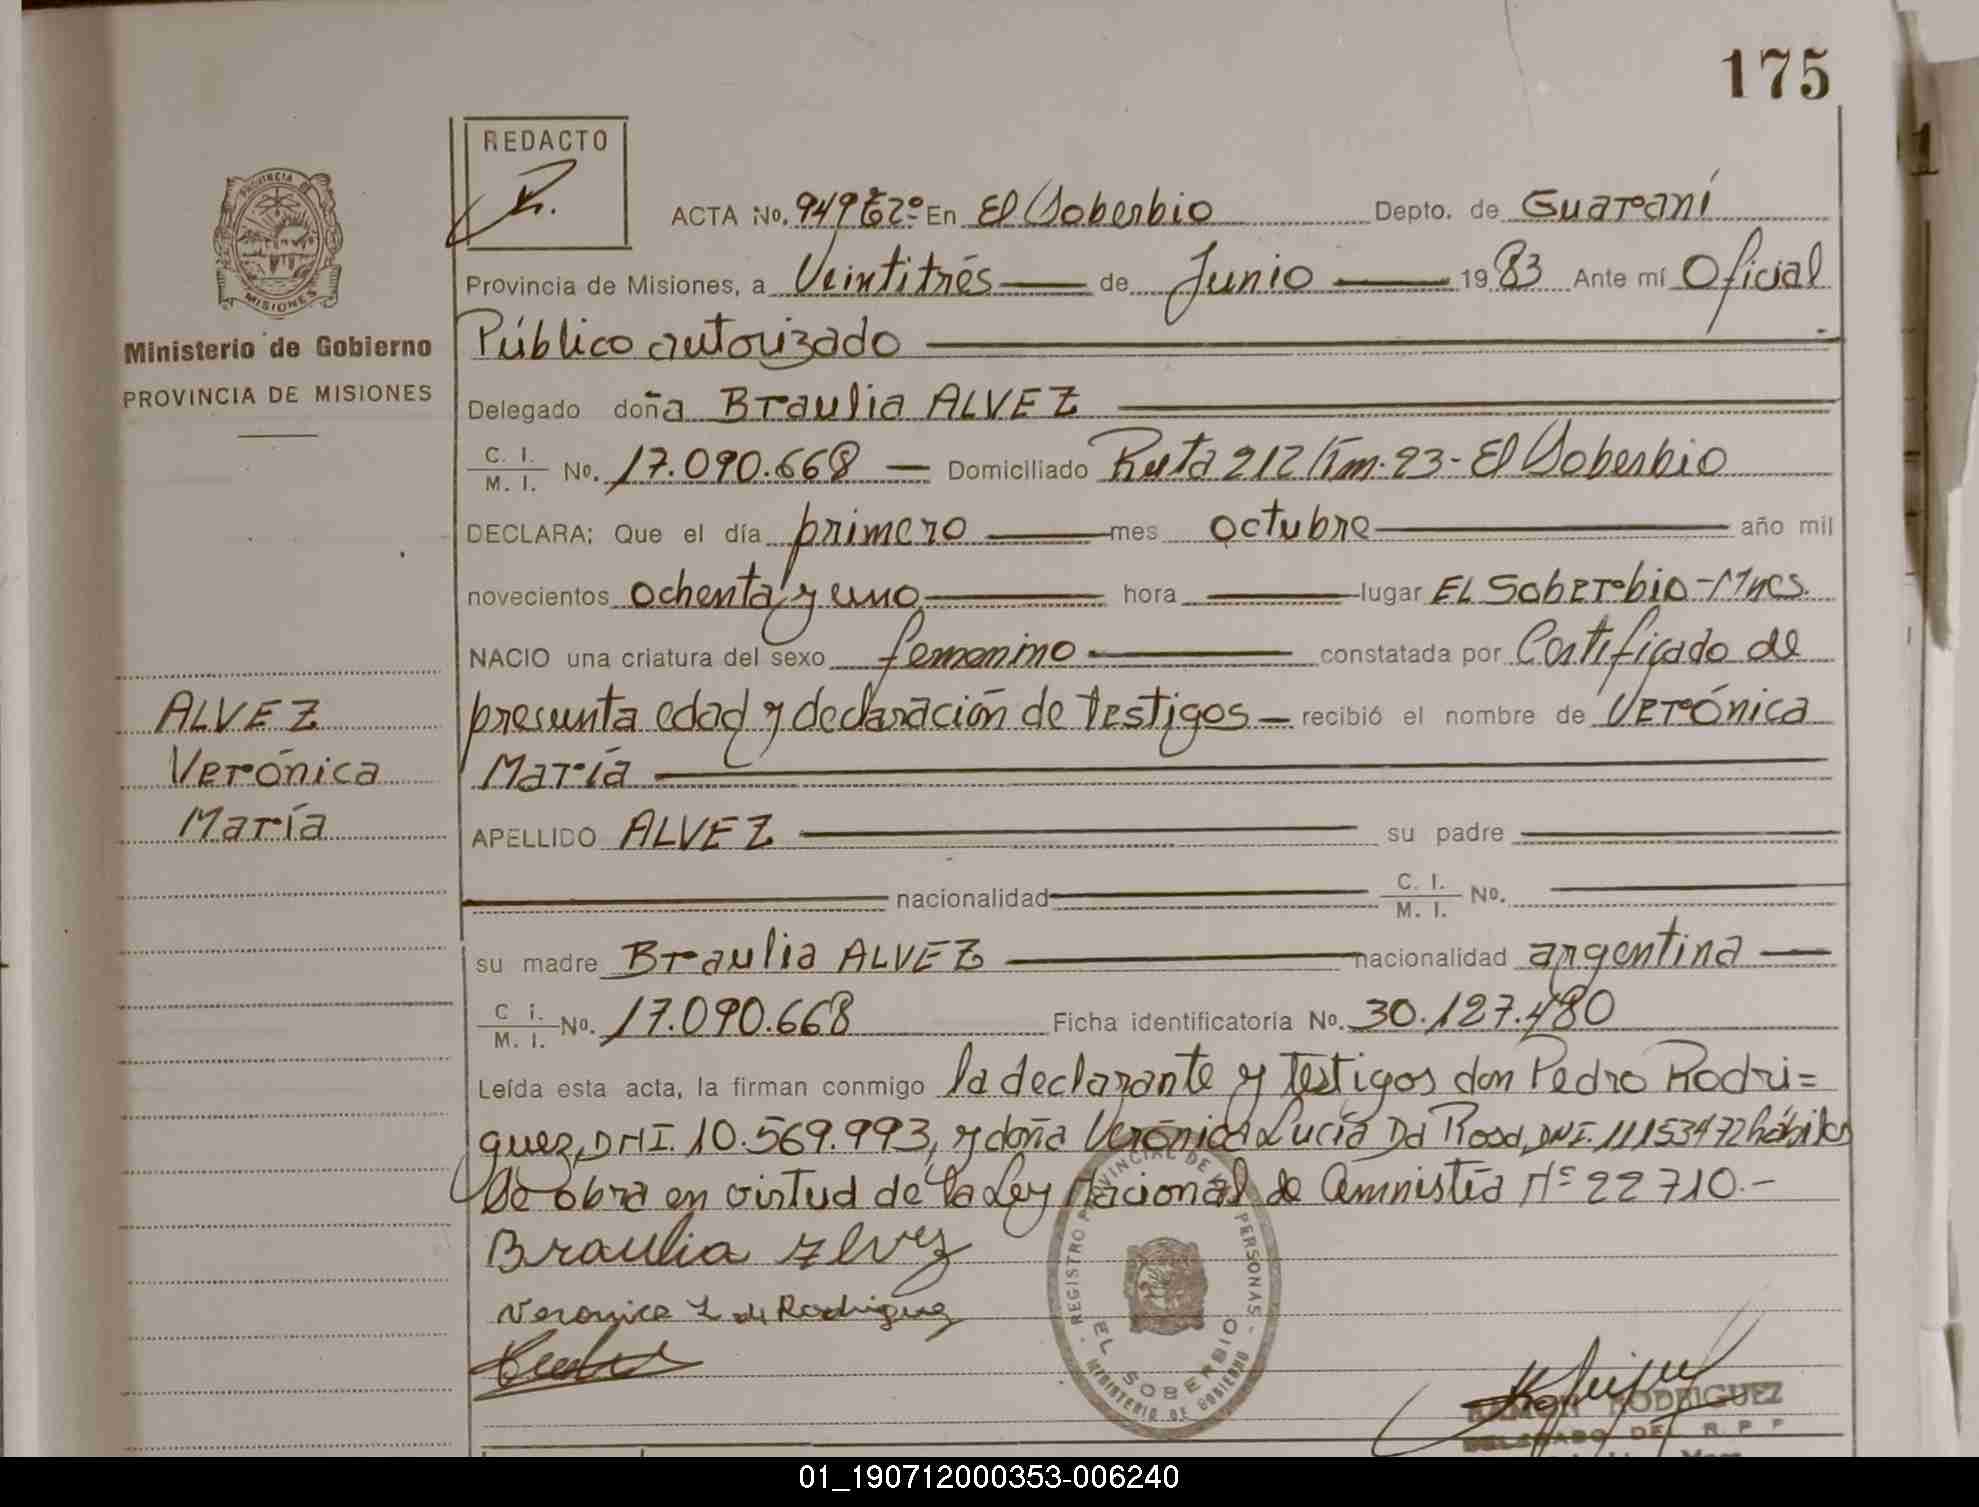 175
REDACTO
PROVINCIA DE
MISIONES
Ministerio de Gobierno
PROVINCIA DE MISIONES
ACTA No. 949 Eº En El Soberbio Depto. de Guaraní
Provincia de Misiones, a Veintitrés de Junio 1983 Ante mí Oficial
Público autorizado
Delegado doña Braulia ALVEZ
C. I. / M. I. No. 17.090.668 Domiciliado Ruta 212 Km. 23 - El Soberbio
DECLARA: Que el día primero mes octubre año mil
novecientos ochenta y uno hora lugar EL Soberbio - Mnes.
NACIO una criatura del sexo femenino constatada por Certificado de
presunta edad y declaración de testigos recibió el nombre de Verónica
María
ALVEZ
Verónica
María
APELLIDO ALVEZ su padre
nacionalidad C. I. / M. I. No.
su madre Braulia ALVEZ nacionalidad argentina
C. i. / M. I. No. 17.090.668 Ficha identificatoria No. 30.127.480
Leída esta acta, la firman conmigo la declarante y testigos don Pedro Rodri=
guez, DNI. 10.569.993, y doña Verónica Lucía Da Rosa, DNI. 11153472 hábiles
Se obra en virtud de la Ley Nacional de Amnistía Nº 22710.-
Braulia Alvez
Veronica L de Rodriguez
REGISTRO PROVINCIAL DE LAS PERSONAS
EL SOBERBIO
MINISTERIO DE GOBIERNO
RAMON RODRIGUEZ
DELEGADO DEL R P P
01_190712000353-006240